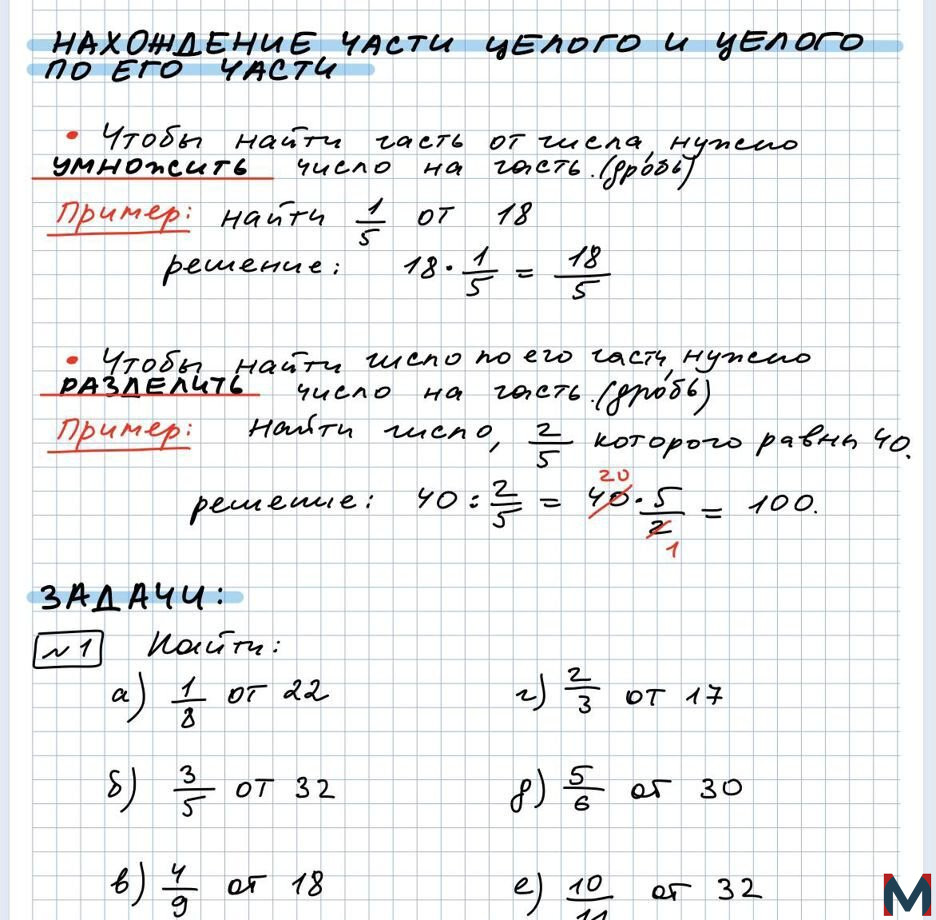 НАХОЖДЕНИЕ ЧАСТИ ЦЕЛОГО И ЦЕЛОГО
ПО ЕГО ЧАСТИ
• Чтобы найти часть от числа, нужно
УМНОЖИТЬ число на часть. (дробь)
Пример: найти 1/5 от 18
решение: 18 · 1/5 = 18/5
• Чтобы найти число по его части, нужно
РАЗДЕЛИТЬ число на часть. (дробь)
Пример: Найти число, 2/5 которого равны 40.
решение: 40 : 2/5 = 40 · 5/2 = 100.
20
1
ЗАДАЧИ:
№1 Найти:
а) 1/8 от 22
г) 2/3 от 17
б) 3/5 от 32
д) 5/6 от 30
в) 4/9 от 18
е) 10/11 от 32
М